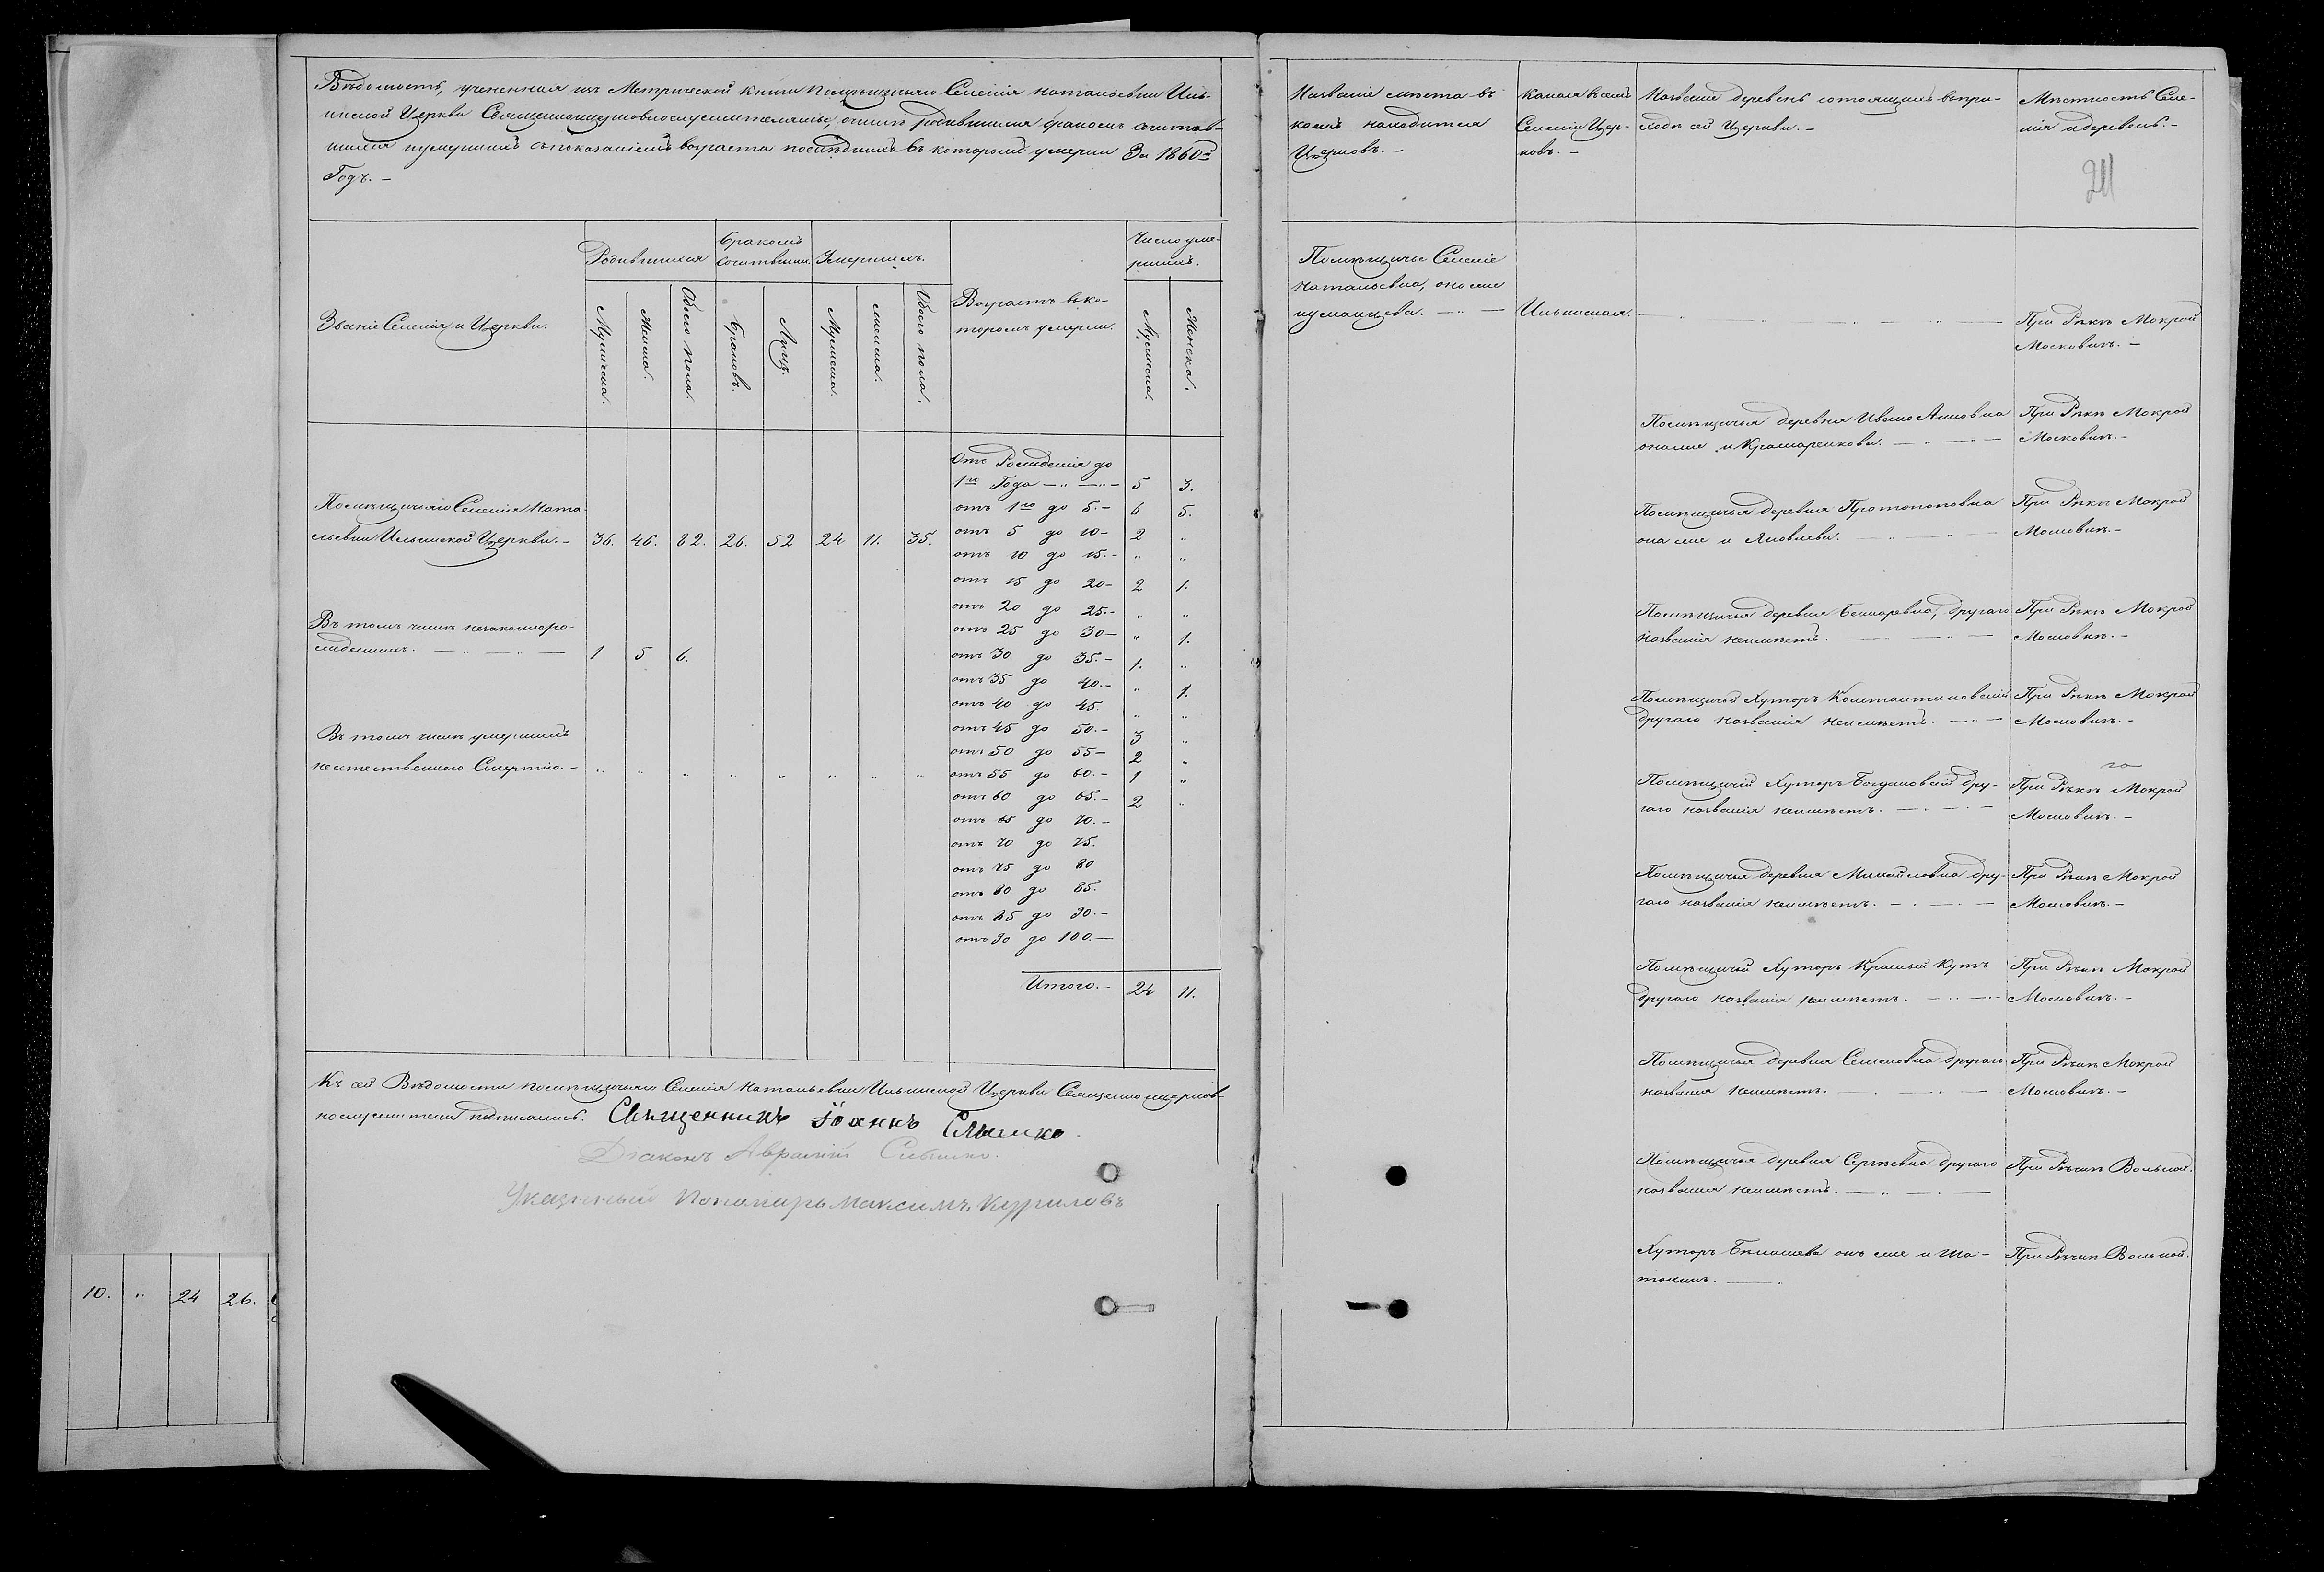 Вѣдомость, учененная изъ Метрической книги Помѣщичьяго Селенія Натальевки Иль-
инской Церкви Священноцерковнослужителями, о числѣ родившихся бракомъ сочетав-
шихся и умершихъ съ показаніемъ возраста послѣднихъ въ которомъ умерли За 1860й
Годъ. —
Званіе Селенія и Церкви.
Родившихся
Бракомъ
сочетавших.
Умершихъ.
Возрастъ въ ко-
торомъ умерли.
Число уме-
ршихъ.
Мужеска.
Женска.
Обоего пола.
Браковъ.
Лицъ.
Мужеска.
женска.
Обоего пола.
Мужеска.
Женска.
Помѣщичьяго Селенія Ната-
льевки Ильинской Церкви. — 36. 46. 82. 26. 52 24 11. 35.
Въ томъ числѣ незаконноро-
жденныхъ. — 1 5 6.
Въ томъ числѣ умершихъ
неестественною Смертію. — " " " " " " " "
Отъ Рожденія до
1го Года — 5 3.
отъ 1го до 5. — 6 5.
отъ 5 до 10 — 2 "
отъ 10 до 15. — " "
отъ 15 до 20 — 2 1.
отъ 20 до 25. — " "
отъ 25 до 30 — " 1.
отъ 30 до 35. — 1. "
отъ 35 до 40. — " 1.
отъ 40 до 45. " "
отъ 45 до 50. — 3 "
отъ 50 до 55 — 2 "
отъ 55 до 60. — 1 "
отъ 60 до 65. — 2 "
отъ 65 до 70. —
отъ 70 до 75.
отъ 75 до 80
отъ 80 до 85.
отъ 85 до 90. —
отъ 90 до 100. —
Итого. — 24 11.
Къ сей Вѣдомости помѣщичьяго Селенія Натальевки Ильинской Церкви Священноцерков-
нослужители подписались. Священникъ Іоаннъ
Діаконъ
Указный Пономарь Максимъ Куриловъ
10. " 24 26.
Названіе мѣста въ
коемъ находится
Церковь. —
Какая въ семъ
Селеніи Цер-
ковь. —
Названіе деревень состоящихъ въ при-
ходѣ сей Церкви. —
Мѣстность Селе-
нія и деревень. —
211
Помѣщичье Селеніе
Натальевка, оно же
Ильинская.
При Рѣкѣ Мокрой
Московкѣ. —
Помѣщичья деревня Ивано Анновка
она же и Крамаренкова. —
При Рѣкѣ Мокрой
Московкѣ. —
Помѣщичья деревня Протопоповка
она же и Яковлева.
При Рѣкѣ Мокрой
Московкѣ. —
Помѣщичья деревня другаго
названія неимѣетъ. —
При Рѣкѣ Мокрой
Московкѣ. —
Помѣщичій Хуторъ Константиновскій
другаго названія неимѣетъ. —
При Рѣкѣ Мокрой
Московкѣ. —
Помѣщичій Хуторъ Богдановскій дру-
гаго названія неимѣетъ. —
При Рѣкѣ Мокрой
Московкѣ. —
Помѣщичья деревня Михайловка дру-
гаго названія неимѣетъ. —
При Рѣкѣ Мокрой
Московкѣ. —
Помѣщичій Хуторъ Красный Кутъ
другаго названія неимѣетъ. —
При Рѣкѣ Мокрой
Московкѣ. —
Помѣщичья деревня Семеновка другаго
названія неимѣетъ.
При Рѣкѣ Мокрой
Московкѣ. —
Помѣщичья деревня Сергѣевка другаго
названія неимѣетъ. —
При Рѣчкѣ Вольной.
Хуторъ онъ же и
При Рѣчкѣ Вольной.